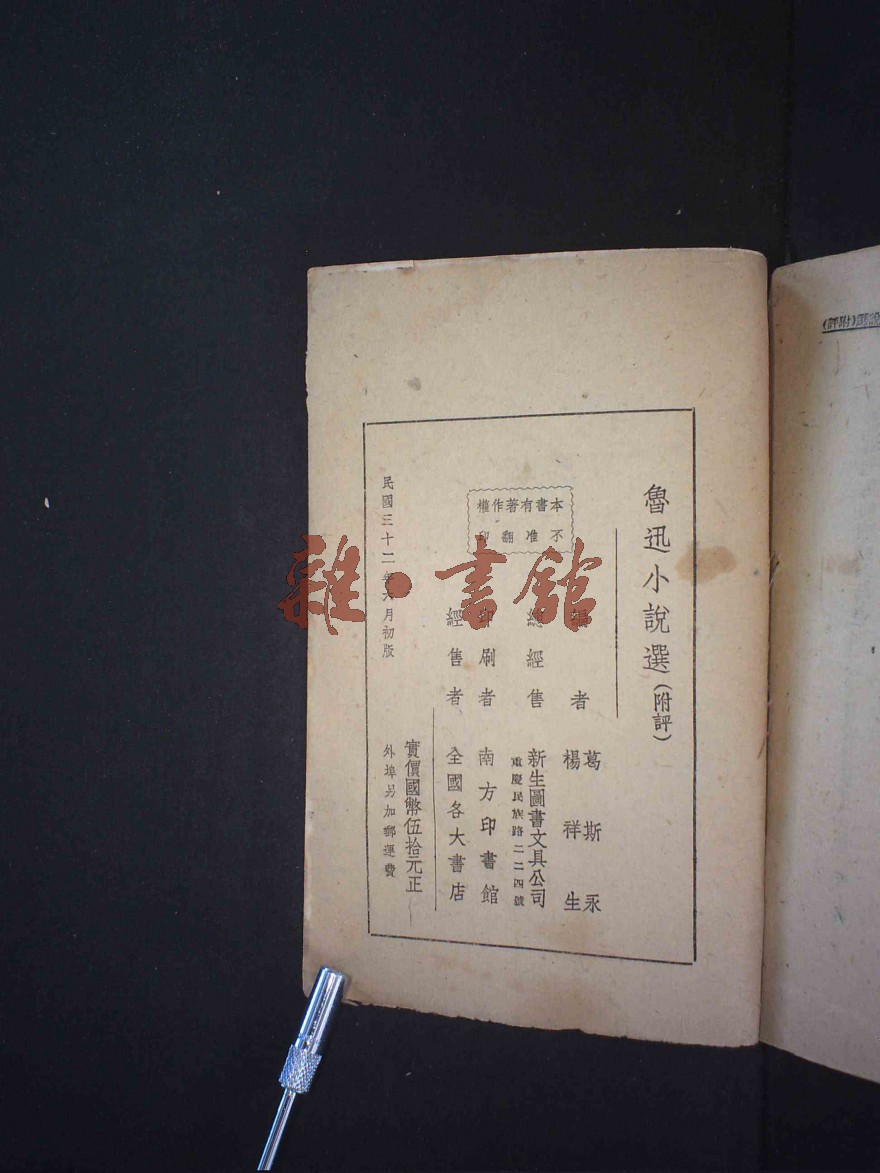 魯迅小說選(附評)
編者 葛斯永
楊祥生
總經售 新生圖書文具公司
重慶民族路二二四號
印刷者 南方印書館
經售者 全國各大書店
本書有著作權
不准翻印
實價國幣伍拾元正
外埠另加郵運費
民國三十二年六月初版
說選(附評)
雜·書館